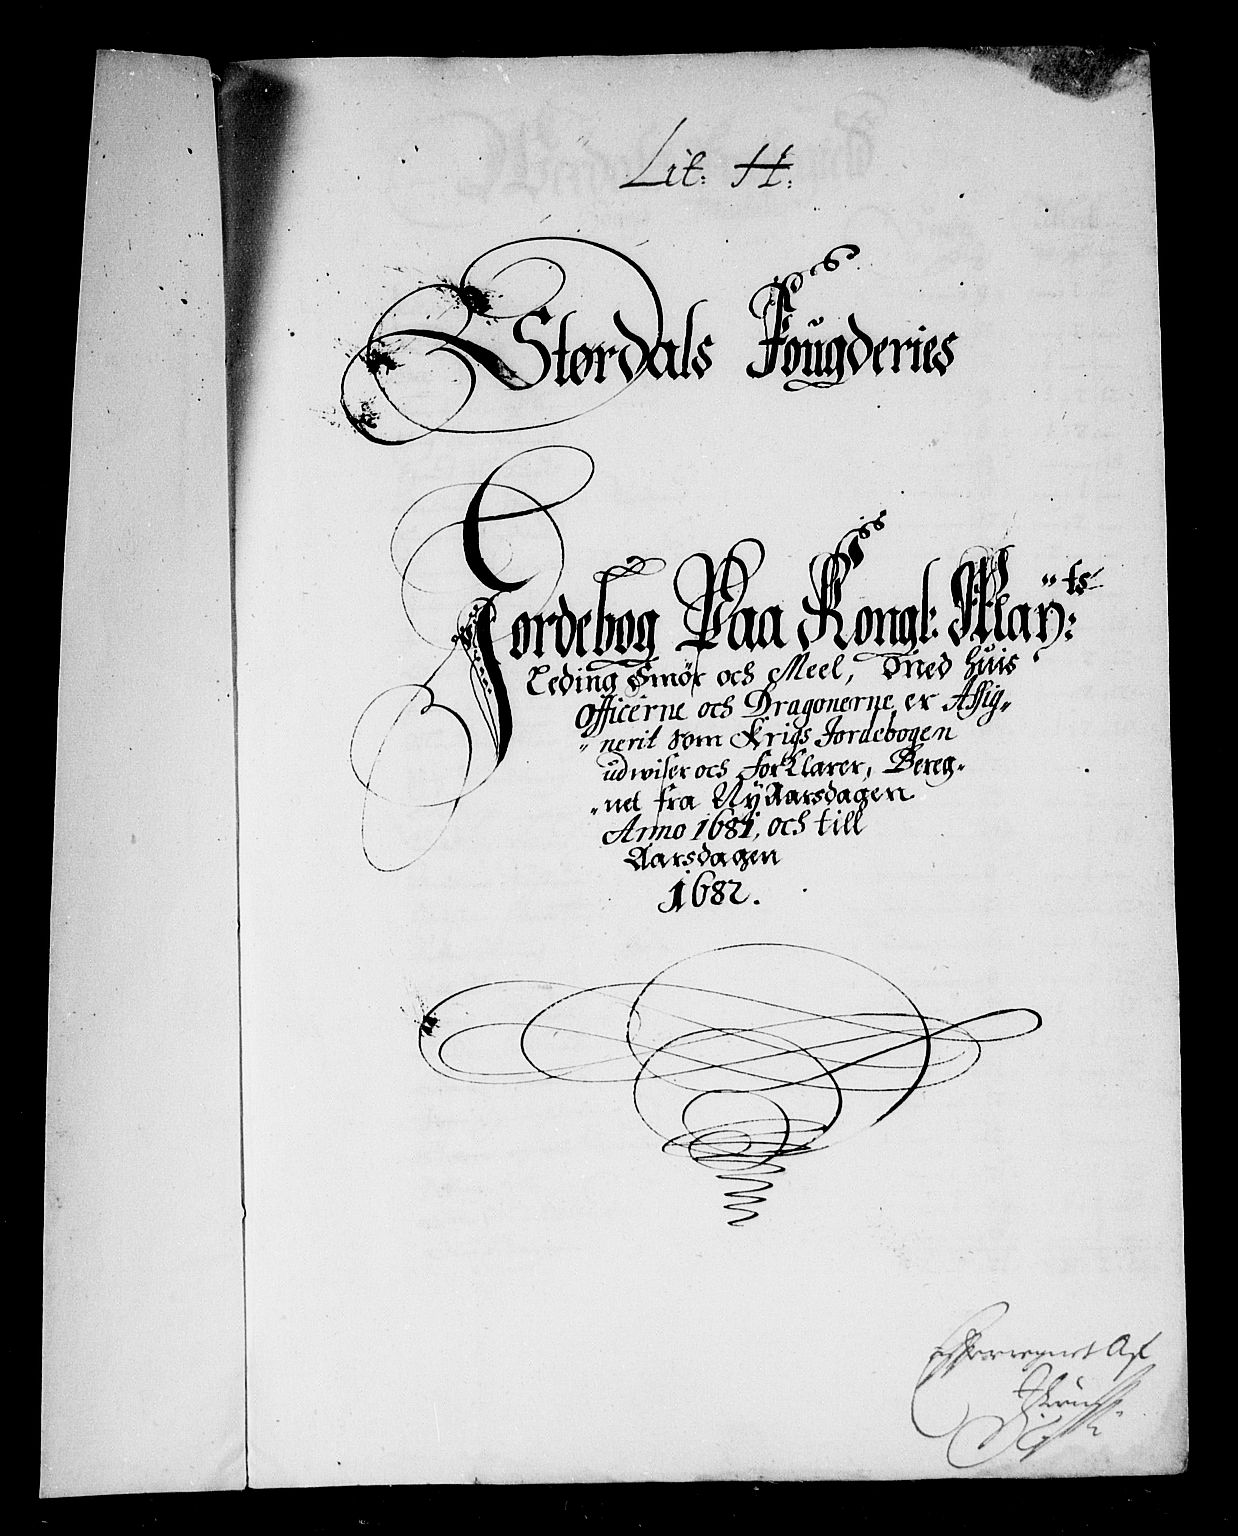 Lit: H:
Størdals Fougderies
Jordebog Paa Kongl: May:ts
Leding Smör och Meel, med huis
Officerne och Dragonerne er Assig„
„nerit som Krigs Jordebogen
udwiser och forklarer, Bereg„
„net fra NyAarsdagen
Anno 1681, och till
Aarsdagen
1682.
Efterregnet Af